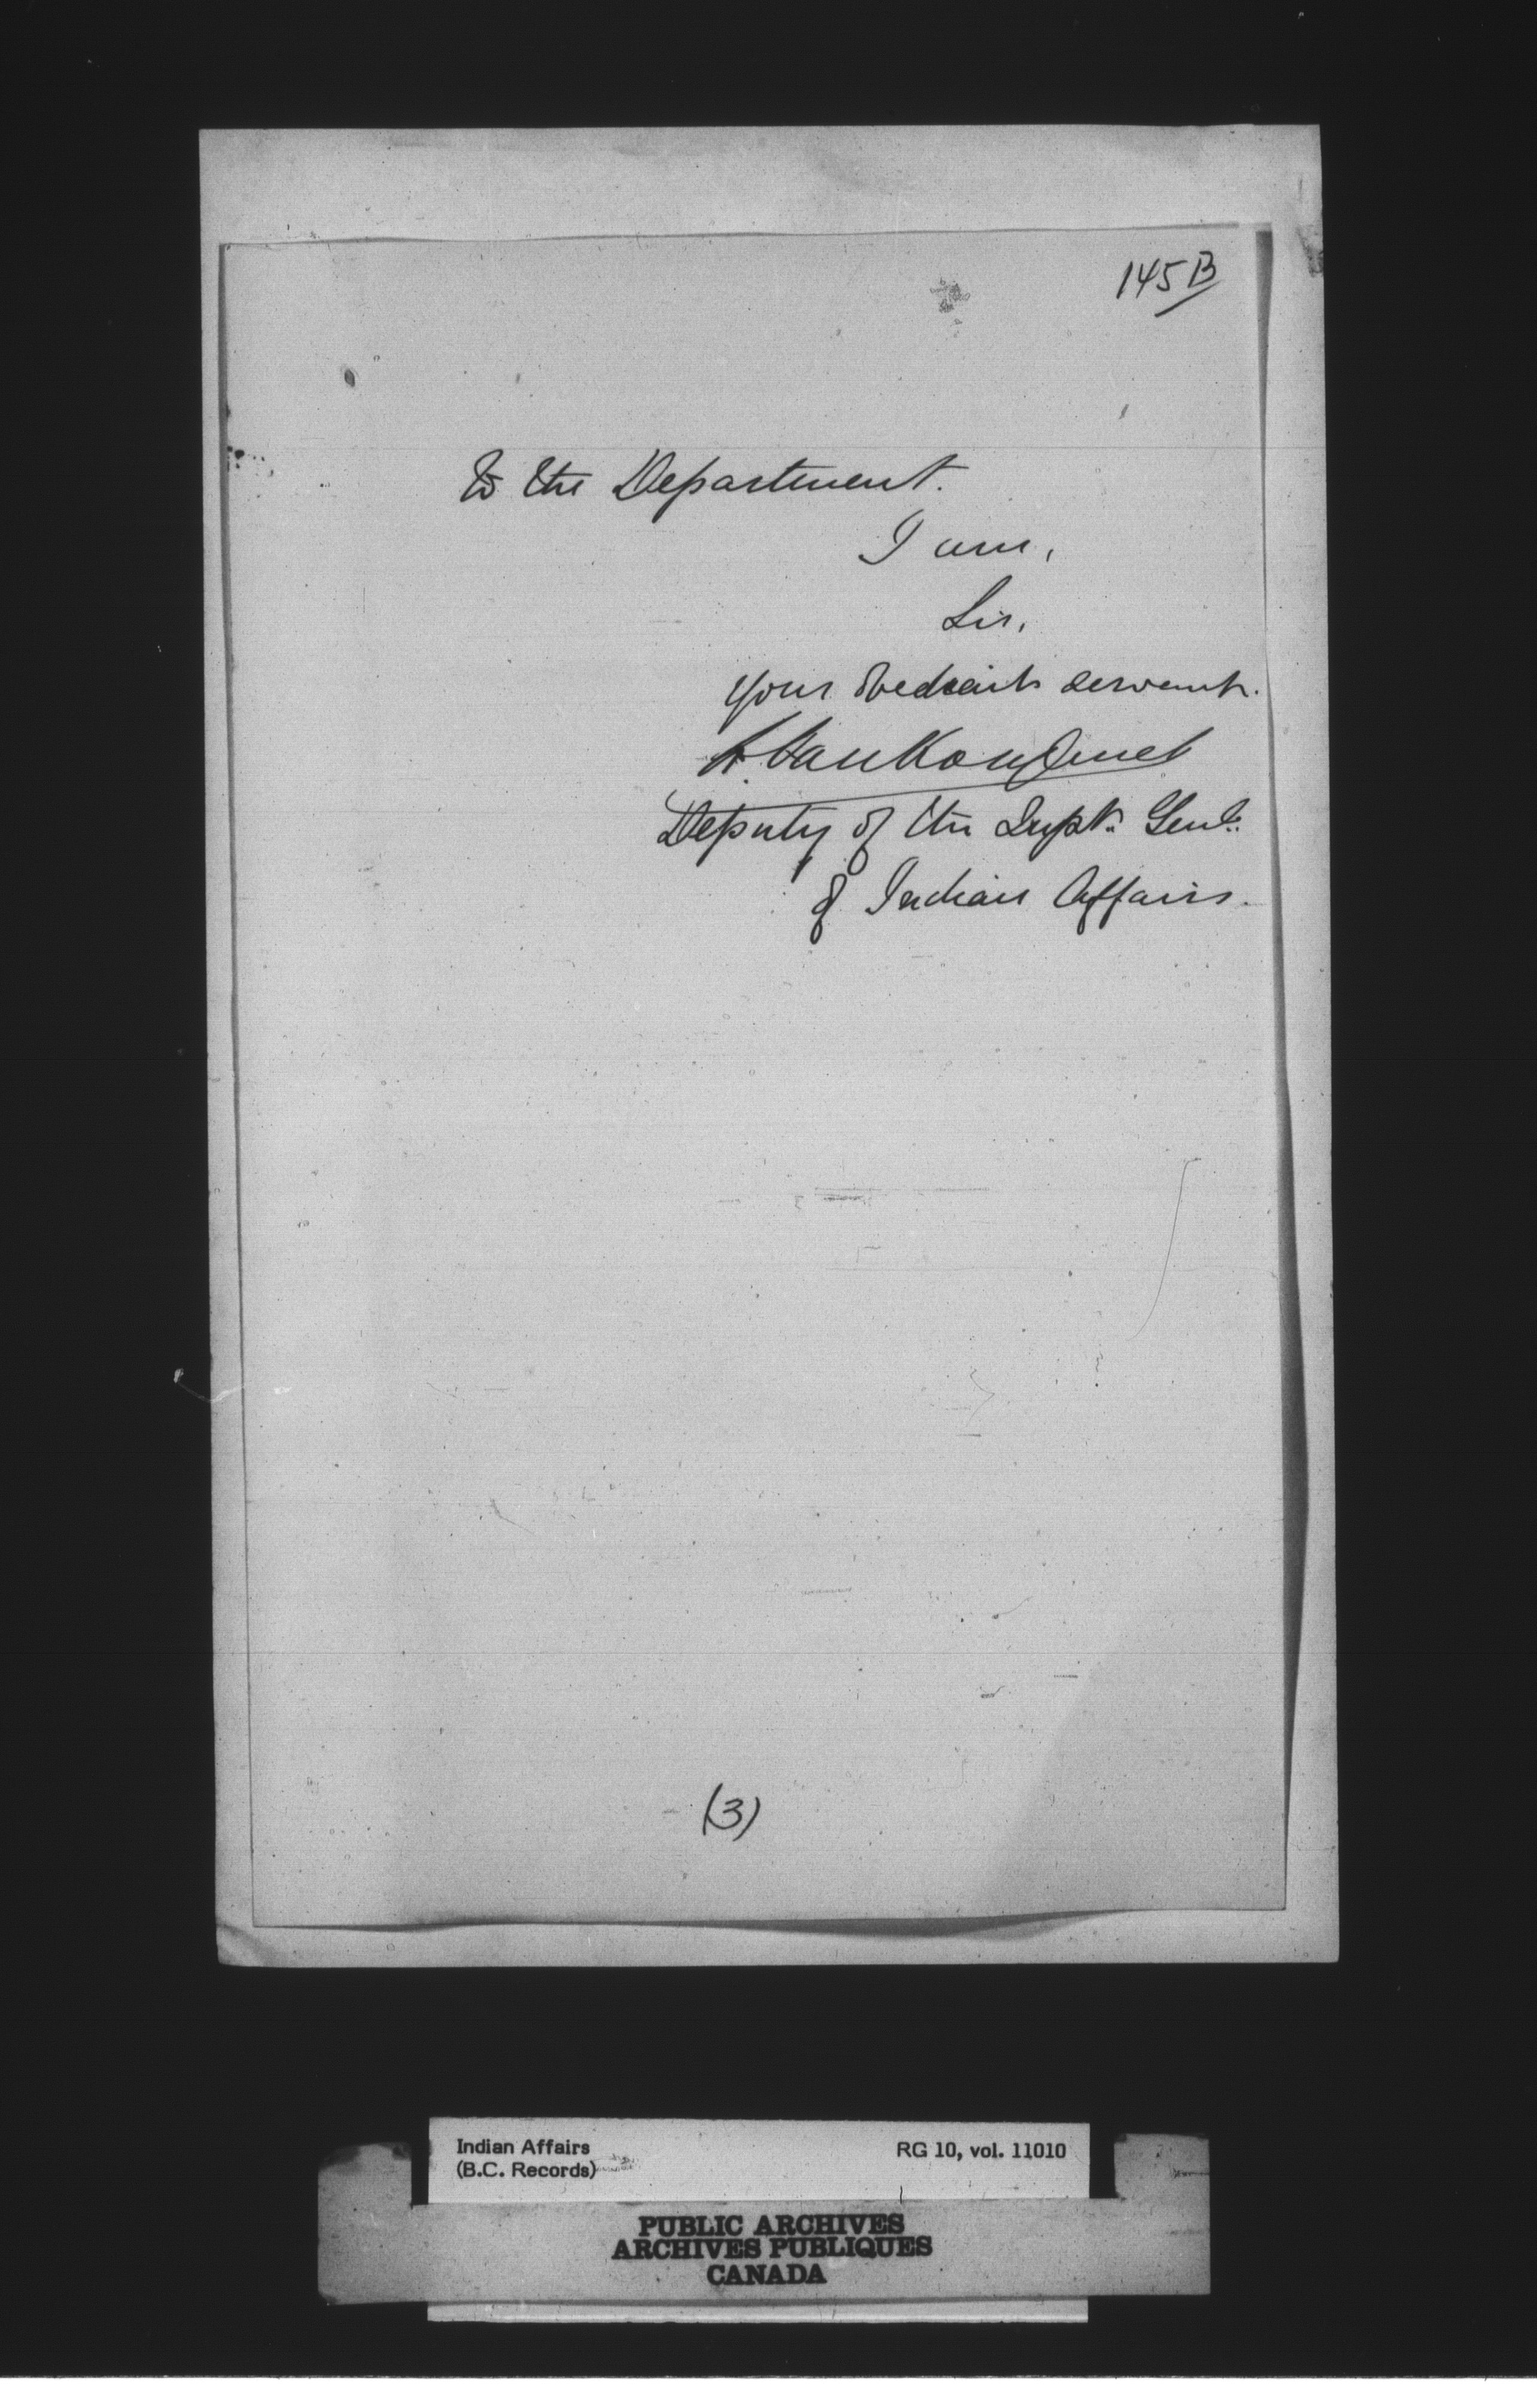 145B
to the Department.
I am,
Sir,
Your obedient servant.
L. VanKoughnet
Deputy of the Supt. Genl.
of Indian Affairs.
(3)
Indian Affairs
(B.C. Records)
RG 10, vol. 11010
PUBLIC ARCHIVES
ARCHIVES PUBLIQUES
CANADA